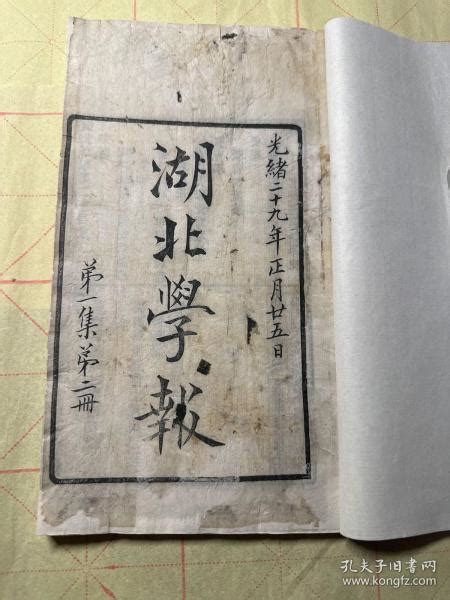 光緒二十九年正月廿五日
湖北學報
第一集第二冊
孔夫子旧书网
www.kongfz.com